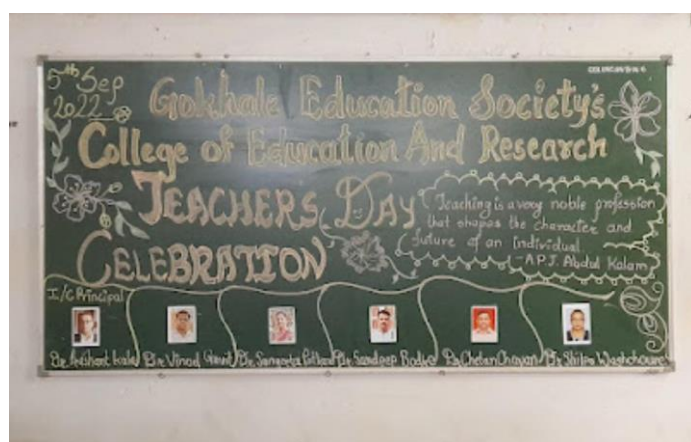 5th Sep
2022
Gokhale Education Society's
College of Education And Research
TEACHERS DAY
CELEBRATION
Teaching is a very noble profession
that shapes the character and
future of an individual
-A.P.J. Abdul Kalam
I/C Principal
Dr. Prashant Kale
Dr. Vinod
Dr. Sangeeta
Dr. Sandeep Bodke
Dr. Chetan Chavan
Dr. Shilpa